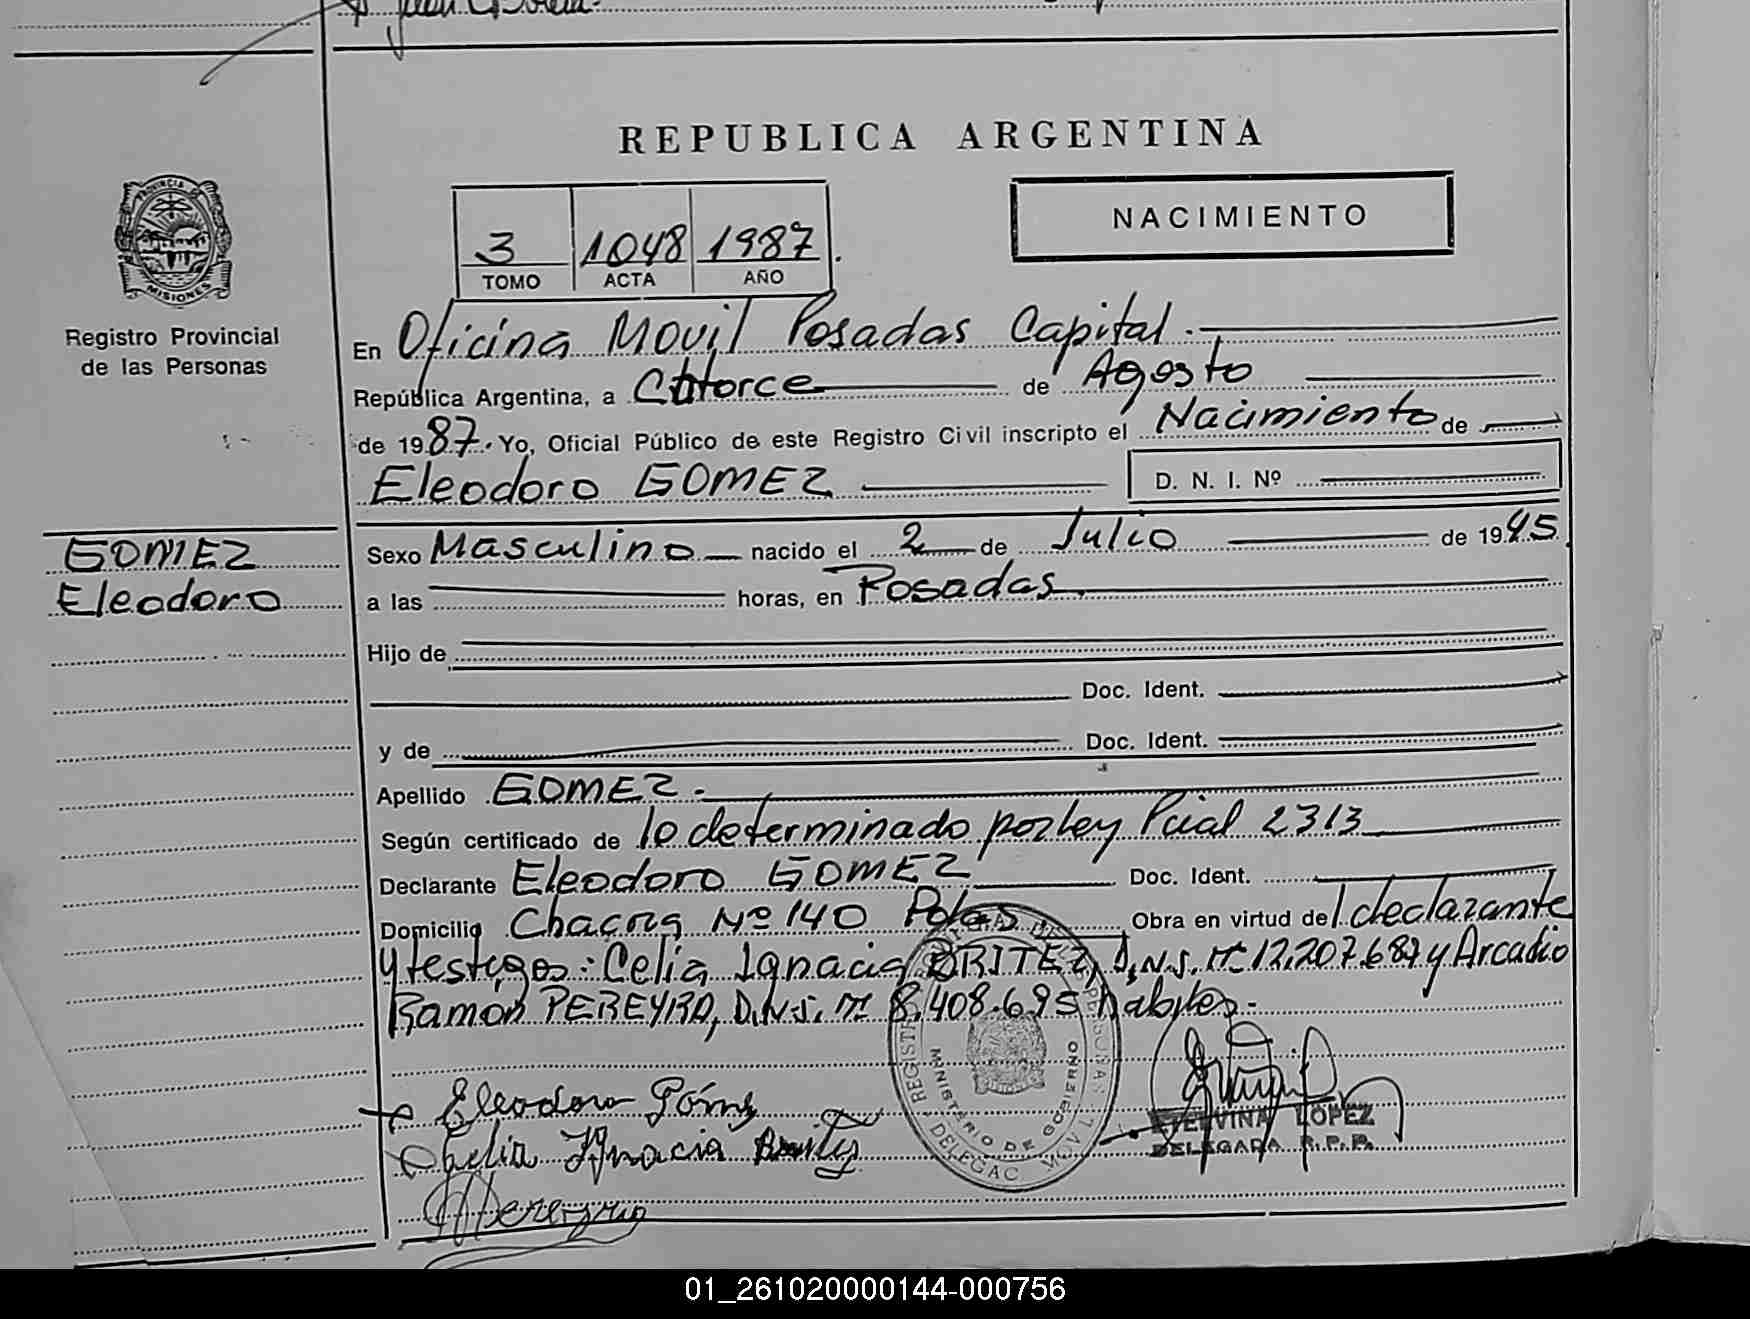 REPUBLICA ARGENTINA
PROVINCIA DE
MISIONES
Registro Provincial
de las Personas
3 1048 1987
TOMO ACTA AÑO
NACIMIENTO
En Oficina Movil Posadas Capital.
República Argentina, a Catorce de Agosto
de 1987. Yo, Oficial Público de este Registro Civil inscripto el Nacimiento de
Eleodoro GOMEZ D. N. I. Nº
GOMEZ
Eleodoro
Sexo Masculino nacido el 2 de Julio de 1945
a las horas, en Posadas.
Hijo de
Doc. Ident.
y de Doc. Ident.
Apellido GOMEZ.
Según certificado de lo determinado por ley Pcial 2313
Declarante Eleodoro GOMEZ Doc. Ident.
Domicilio Chacra Nº 140 Pdas Obra en virtud del declarante
y testigos: Celia Ignacia BRITEZ, D.N.I. Nº 12.207.687 y Arcadio
Ramon PEREYRA, D.N.I. Nº 8.408.695 habiles.
Eleodoro Gómez
Ignacia
MINISTERIO DE GOBIERNO
DELEGAC. MOVIL
ETELVINA LOPEZ
DELEGADA R.P.P.
01_261020000144-000756